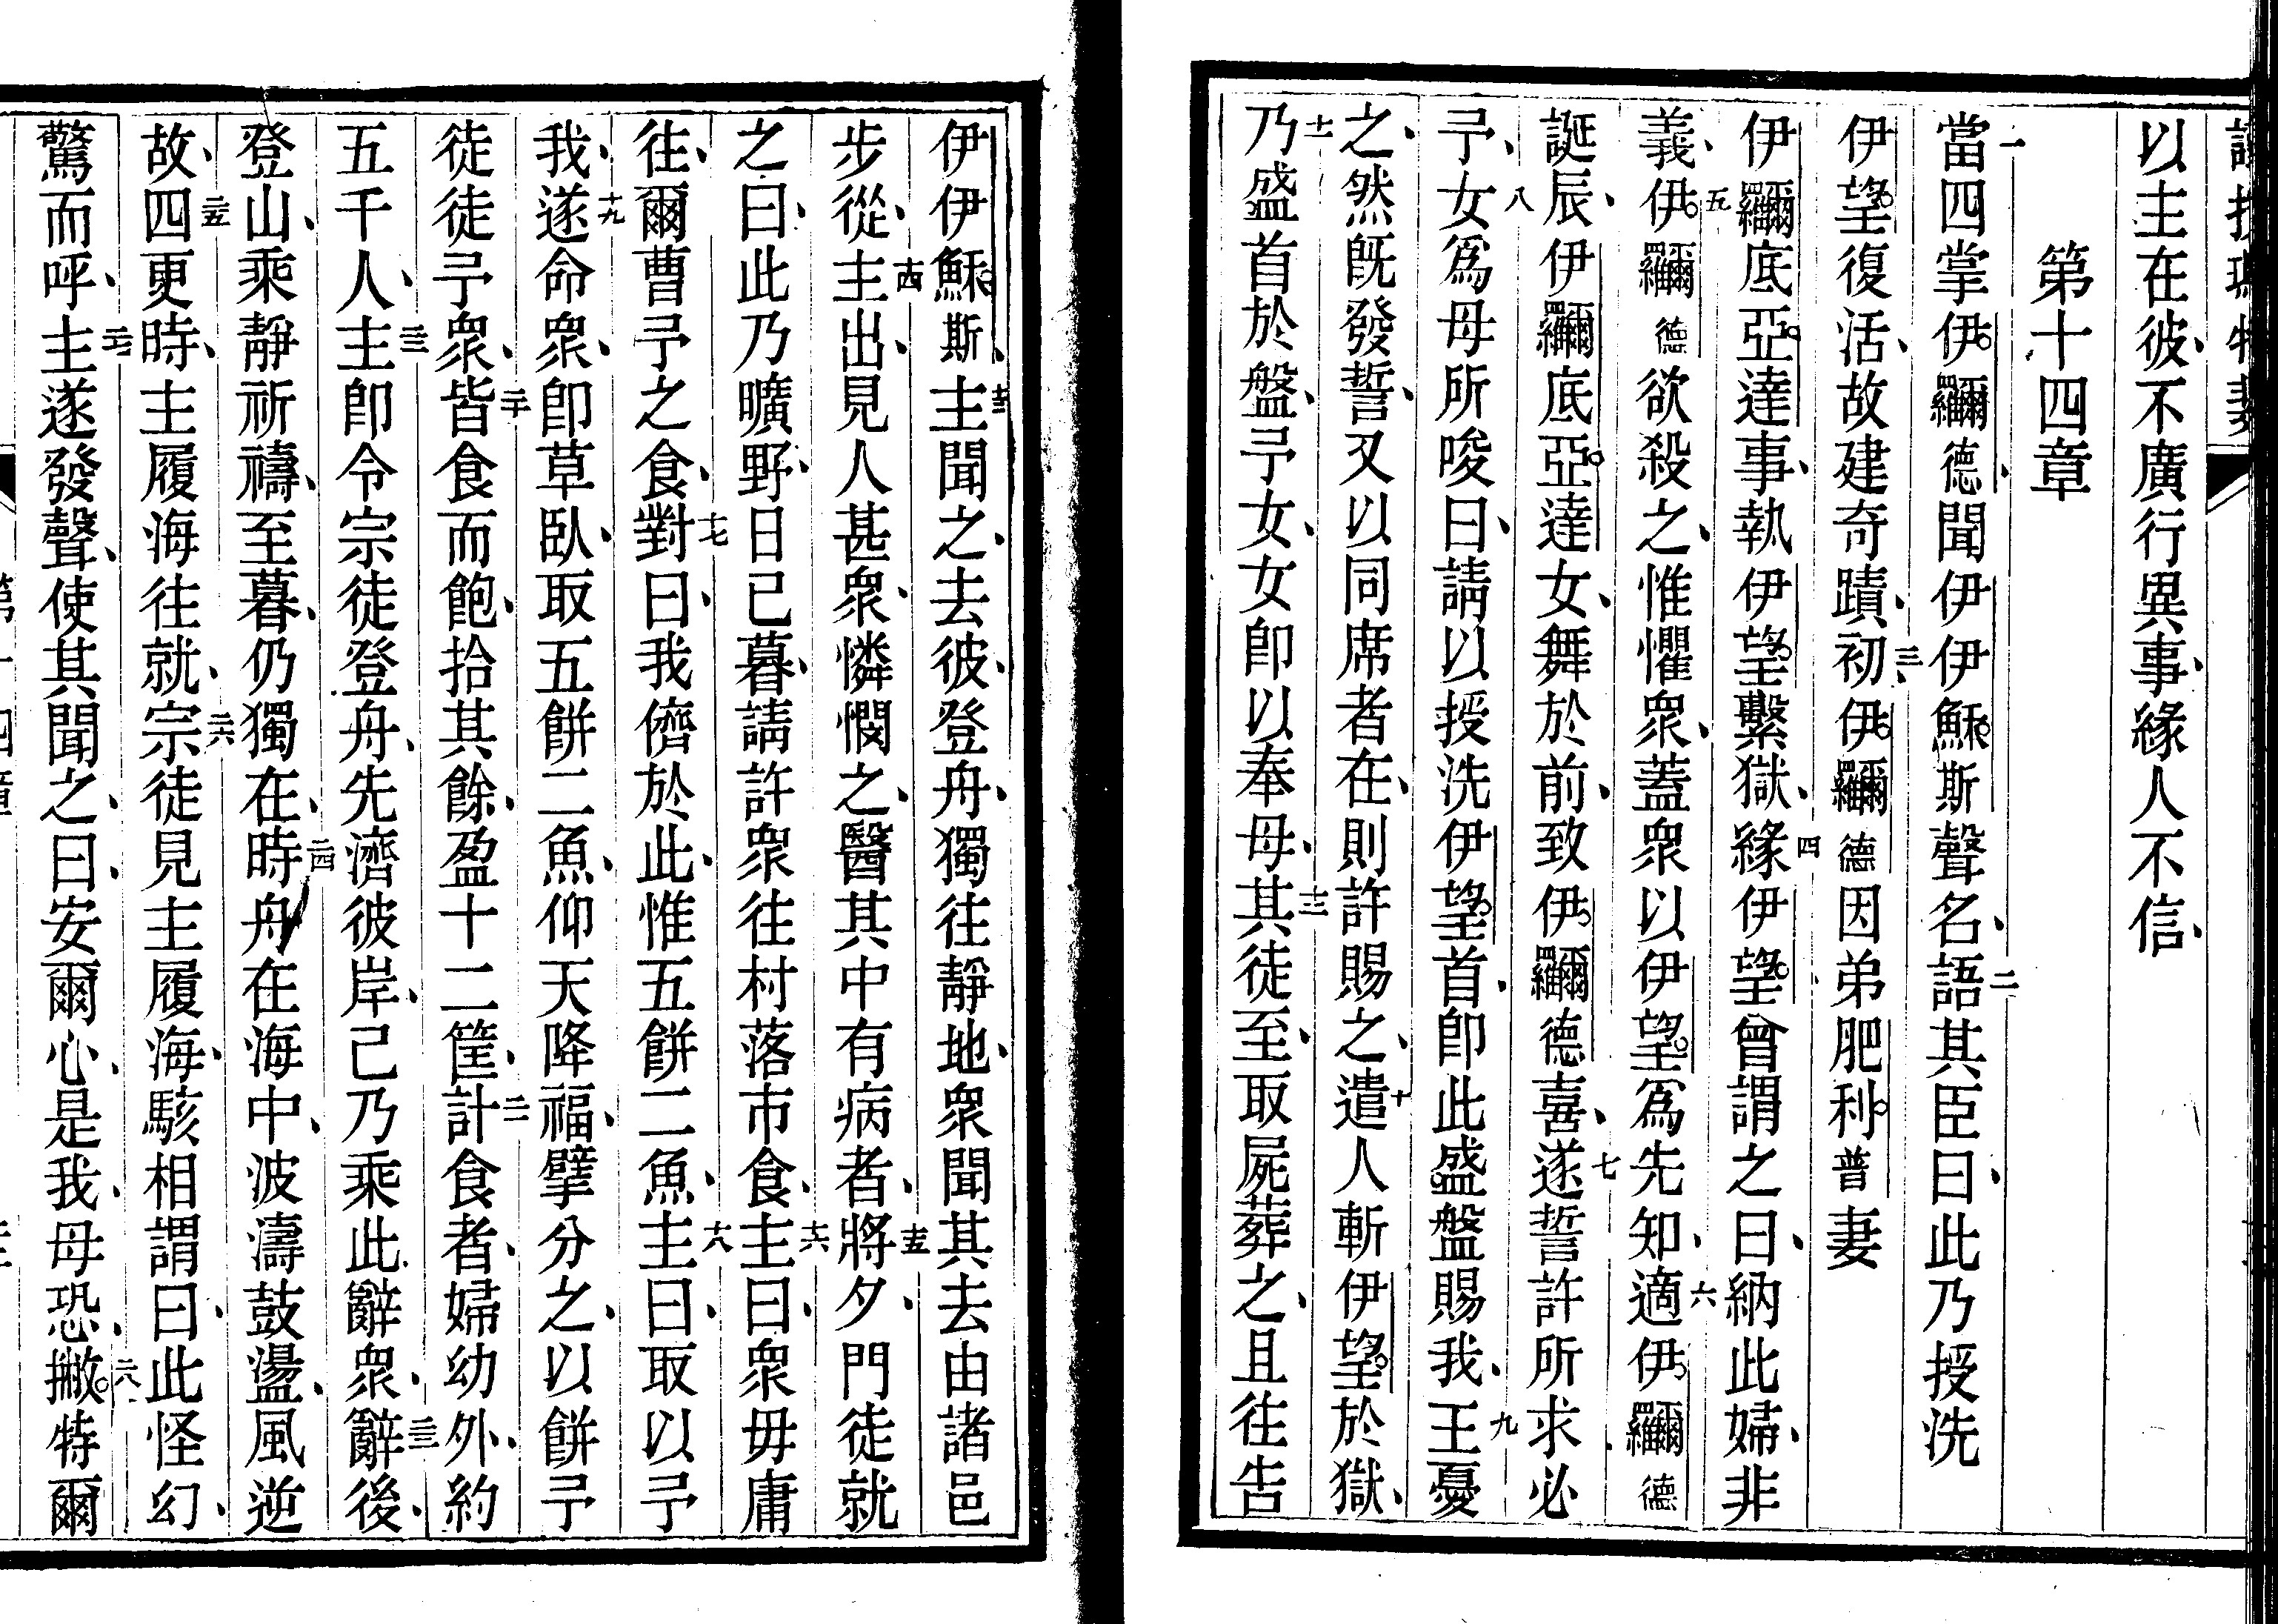 以主在彼、不廣行異事、緣人不信、
第十四章
一當四掌伊。𮉡德、聞伊伊穌。斯聲名、二語其臣曰、此乃授洗
伊望。復活、故建奇蹟、三初、伊。𮉡德因弟肥利。普妻
伊𮉡底亞。達事、執伊望。繫獄、四緣伊望。曾謂之曰、納此婦、非
義、五伊。𮉡德欲殺之、惟懼眾、蓋眾以伊望。為先知、六適伊。𮉡德
誕辰、伊𮉡底亞。達女、舞於前、致伊。𮉡德喜、七遂誓許所求必
予、八女為母所唆曰、請以授洗伊望。首、即此盛盤賜我、九王憂
之、然既發誓、又以同席者在、則許賜之、十遣人斬伊望。於獄、
十一乃盛首於盤、予女、女即以奉母、十二其徒至、取屍葬之、且往告
伊伊穌。斯、十三主聞之、去彼、登舟、獨往靜地、眾聞其去由諸邑
步從、十四主出、見人甚眾、憐憫之、醫其中有病者、十五將夕、門徒就
之曰、此乃曠野、日已暮、請許眾往村落市食、十六主曰、眾毋庸
往、爾曹予之食、十七對曰、我儕於此、惟五餅二魚、十八主曰、取以予
我、十九遂命眾、即草臥、取五餅二魚、仰天降福、擘分之、以餅予
徒、徒予眾、二十皆食而飽、拾其餘、盈十二筐、二一計食者、婦幼外、約
五千人、二二主即令宗徒登舟、先濟彼岸、己乃乘此辭眾、二三辭後、
登山、乘靜祈禱、至暮、仍獨在、二四時舟在海中、波濤鼓盪、風逆
故、二五四更時、主履海往就、二六宗徒見主履海、駭相謂曰、此怪幻、
驚而呼、二七主遂發聲、使其聞之、曰、安爾心、是我、毋恐、二八撇。特爾